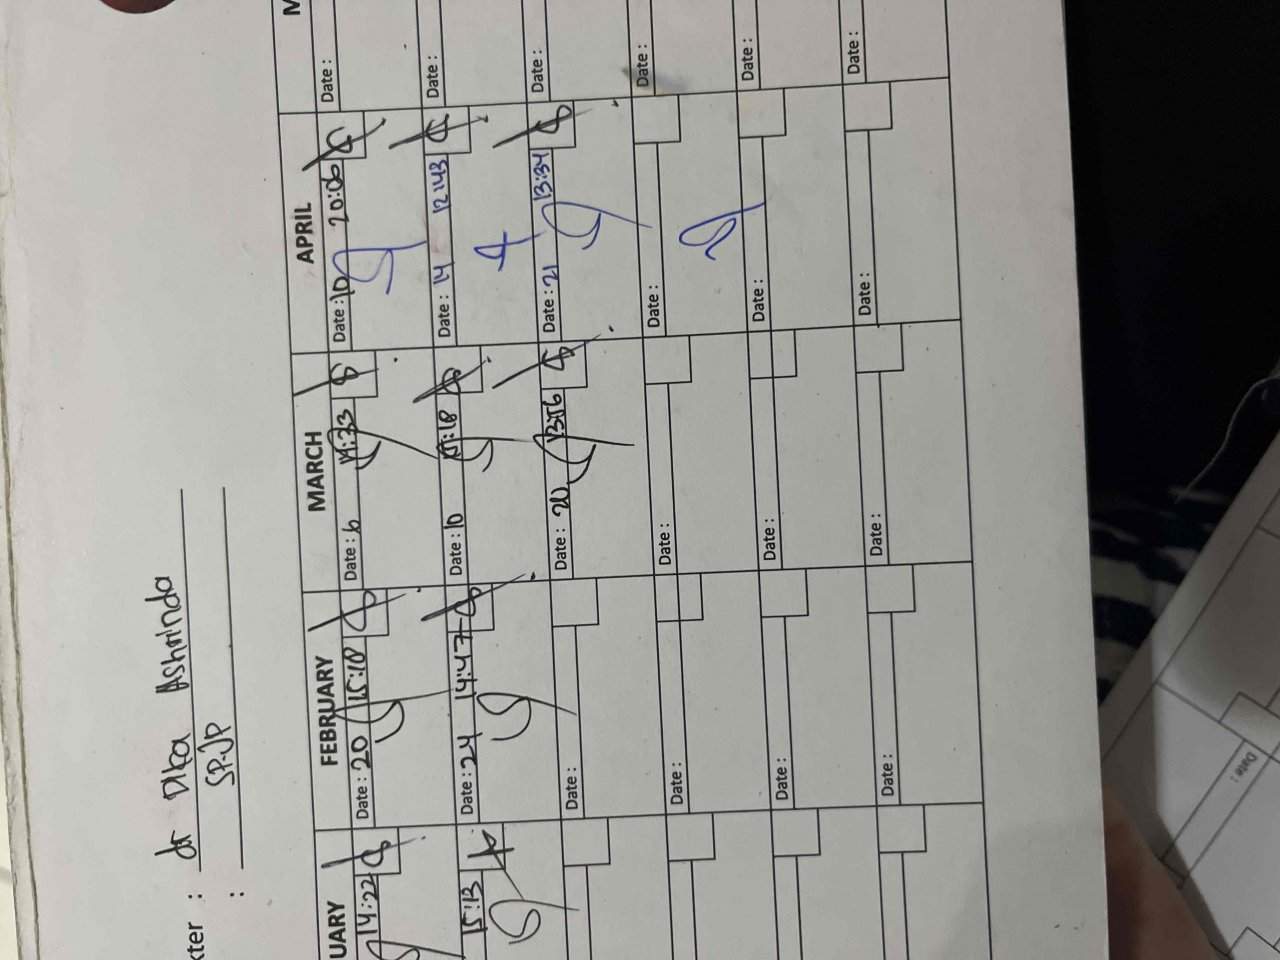 kter : dr Dika Ashrinda
: SP.JP
UARY FEBRUARY MARCH APRIL M
14:22 Date : 20 15:18 Date : 6 Date : 10 20:06 Date :
15:13 Date : 24 14:47 Date : 10 Date : 14 12:43 Date :
Date : Date : 20 Date : 21 13:34 Date :
Date : Date : Date : Date :
Date : Date : Date : Date :
Date : Date : Date : Date :
Date :